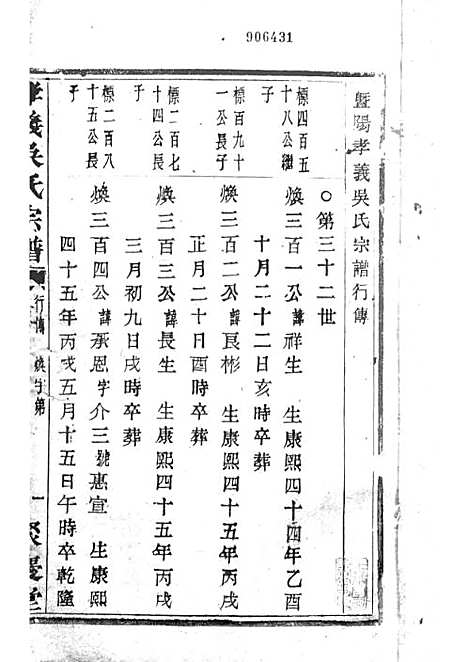 906431
暨陽孝義吳氏宗譜行傳
○第三十二世
標四百五十八公繼子
煥三百一公諱祥生 生康熙四十四年乙酉
十月二十二日亥時卒葬
標百九十一公長子
煥三百二公諱良彬 生康熙四十五年丙戌
正月二十日酉時卒葬
標二百七十四公長子
煥三百三公諱長生 生康熙四十五年丙戌
三月初九日戌時卒葬
標二百八十五公長子
煥三百四公諱承恩字介三號惠宣 生康熙
四十五年丙戌五月十五日午時卒乾隆
孝義吳氏宗譜
行傳
煥字第
一
聚慶堂